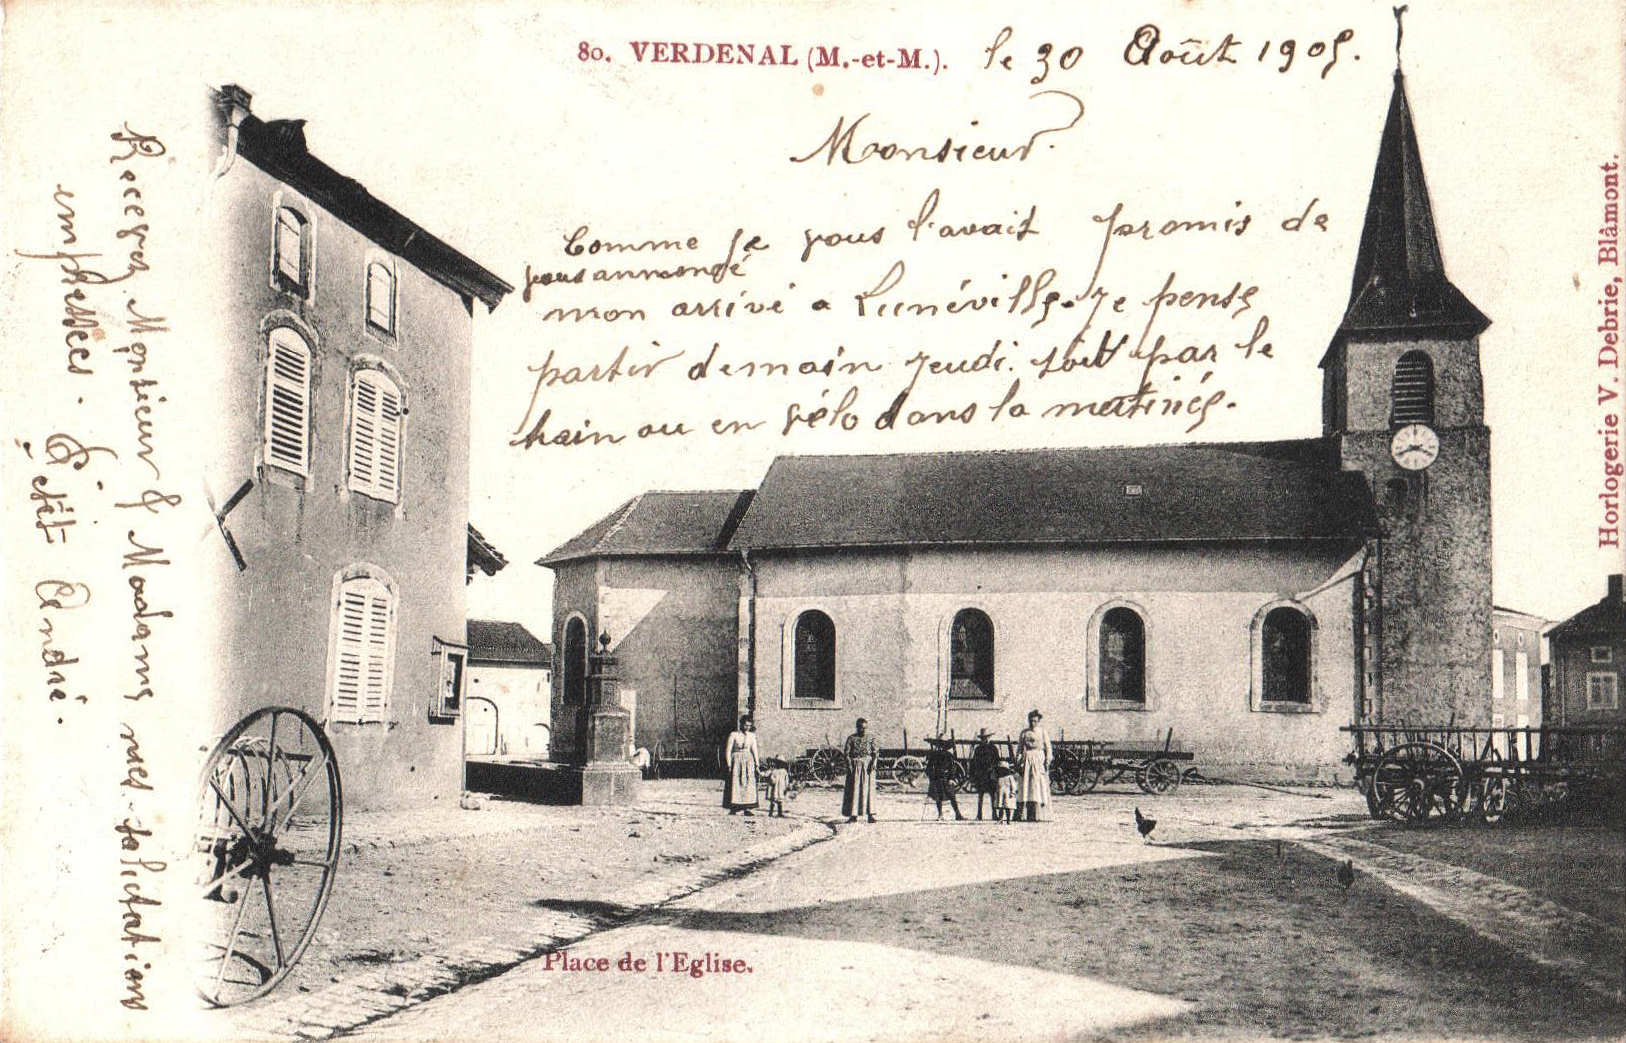 80. VERDENAL (M.-et-M.).
le 30 Août 1905.
Monsieur.
Comme je vous l'avait promis de
vous annoncé
mon arrivé a Lunéville. Je pense
partir demain jeudi. soit par le
train ou en vélo dans la matinée.
Recevez Monsieur & Madame mes salictations
empressées.
André.
Place de l'Eglise.
Horlogerie V. Debrie, Blâmont.